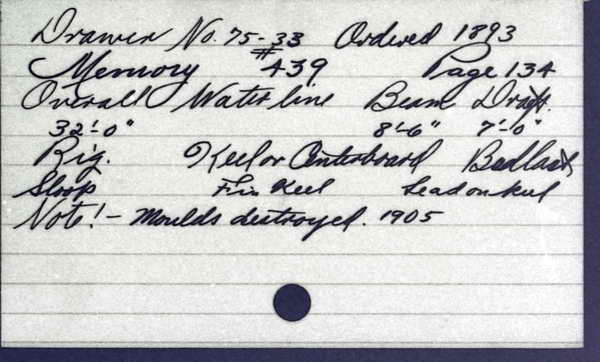 Drawer No. 75-33 Ordered 1893
Memory #439 Page 134
Overall Waterline Beam Draft.
32'-0" 8'-6" 7'-0"
Rig. Keel or Centerboard Ballast
Sloop Fin Keel Lead on keel
Note! - Moulds destroyed. 1905